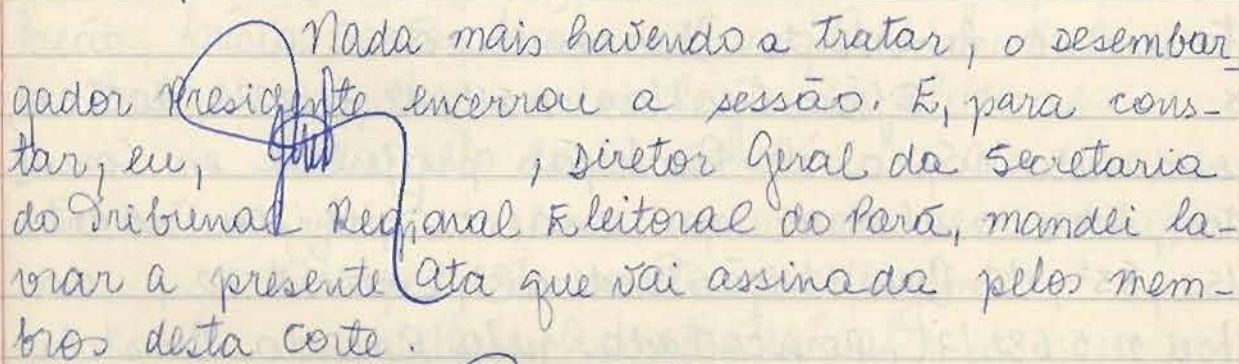 Nada mais havendo a tratar, o desembar
gador Presidente encerrou a sessão. E, para cons-
tar, eu, , Diretor Geral da Secretaria
do Tribunal Regional Eleitoral do Pará, mandei la-
vrar a presente Ata que vai assinada pelos mem-
bros desta Corte.